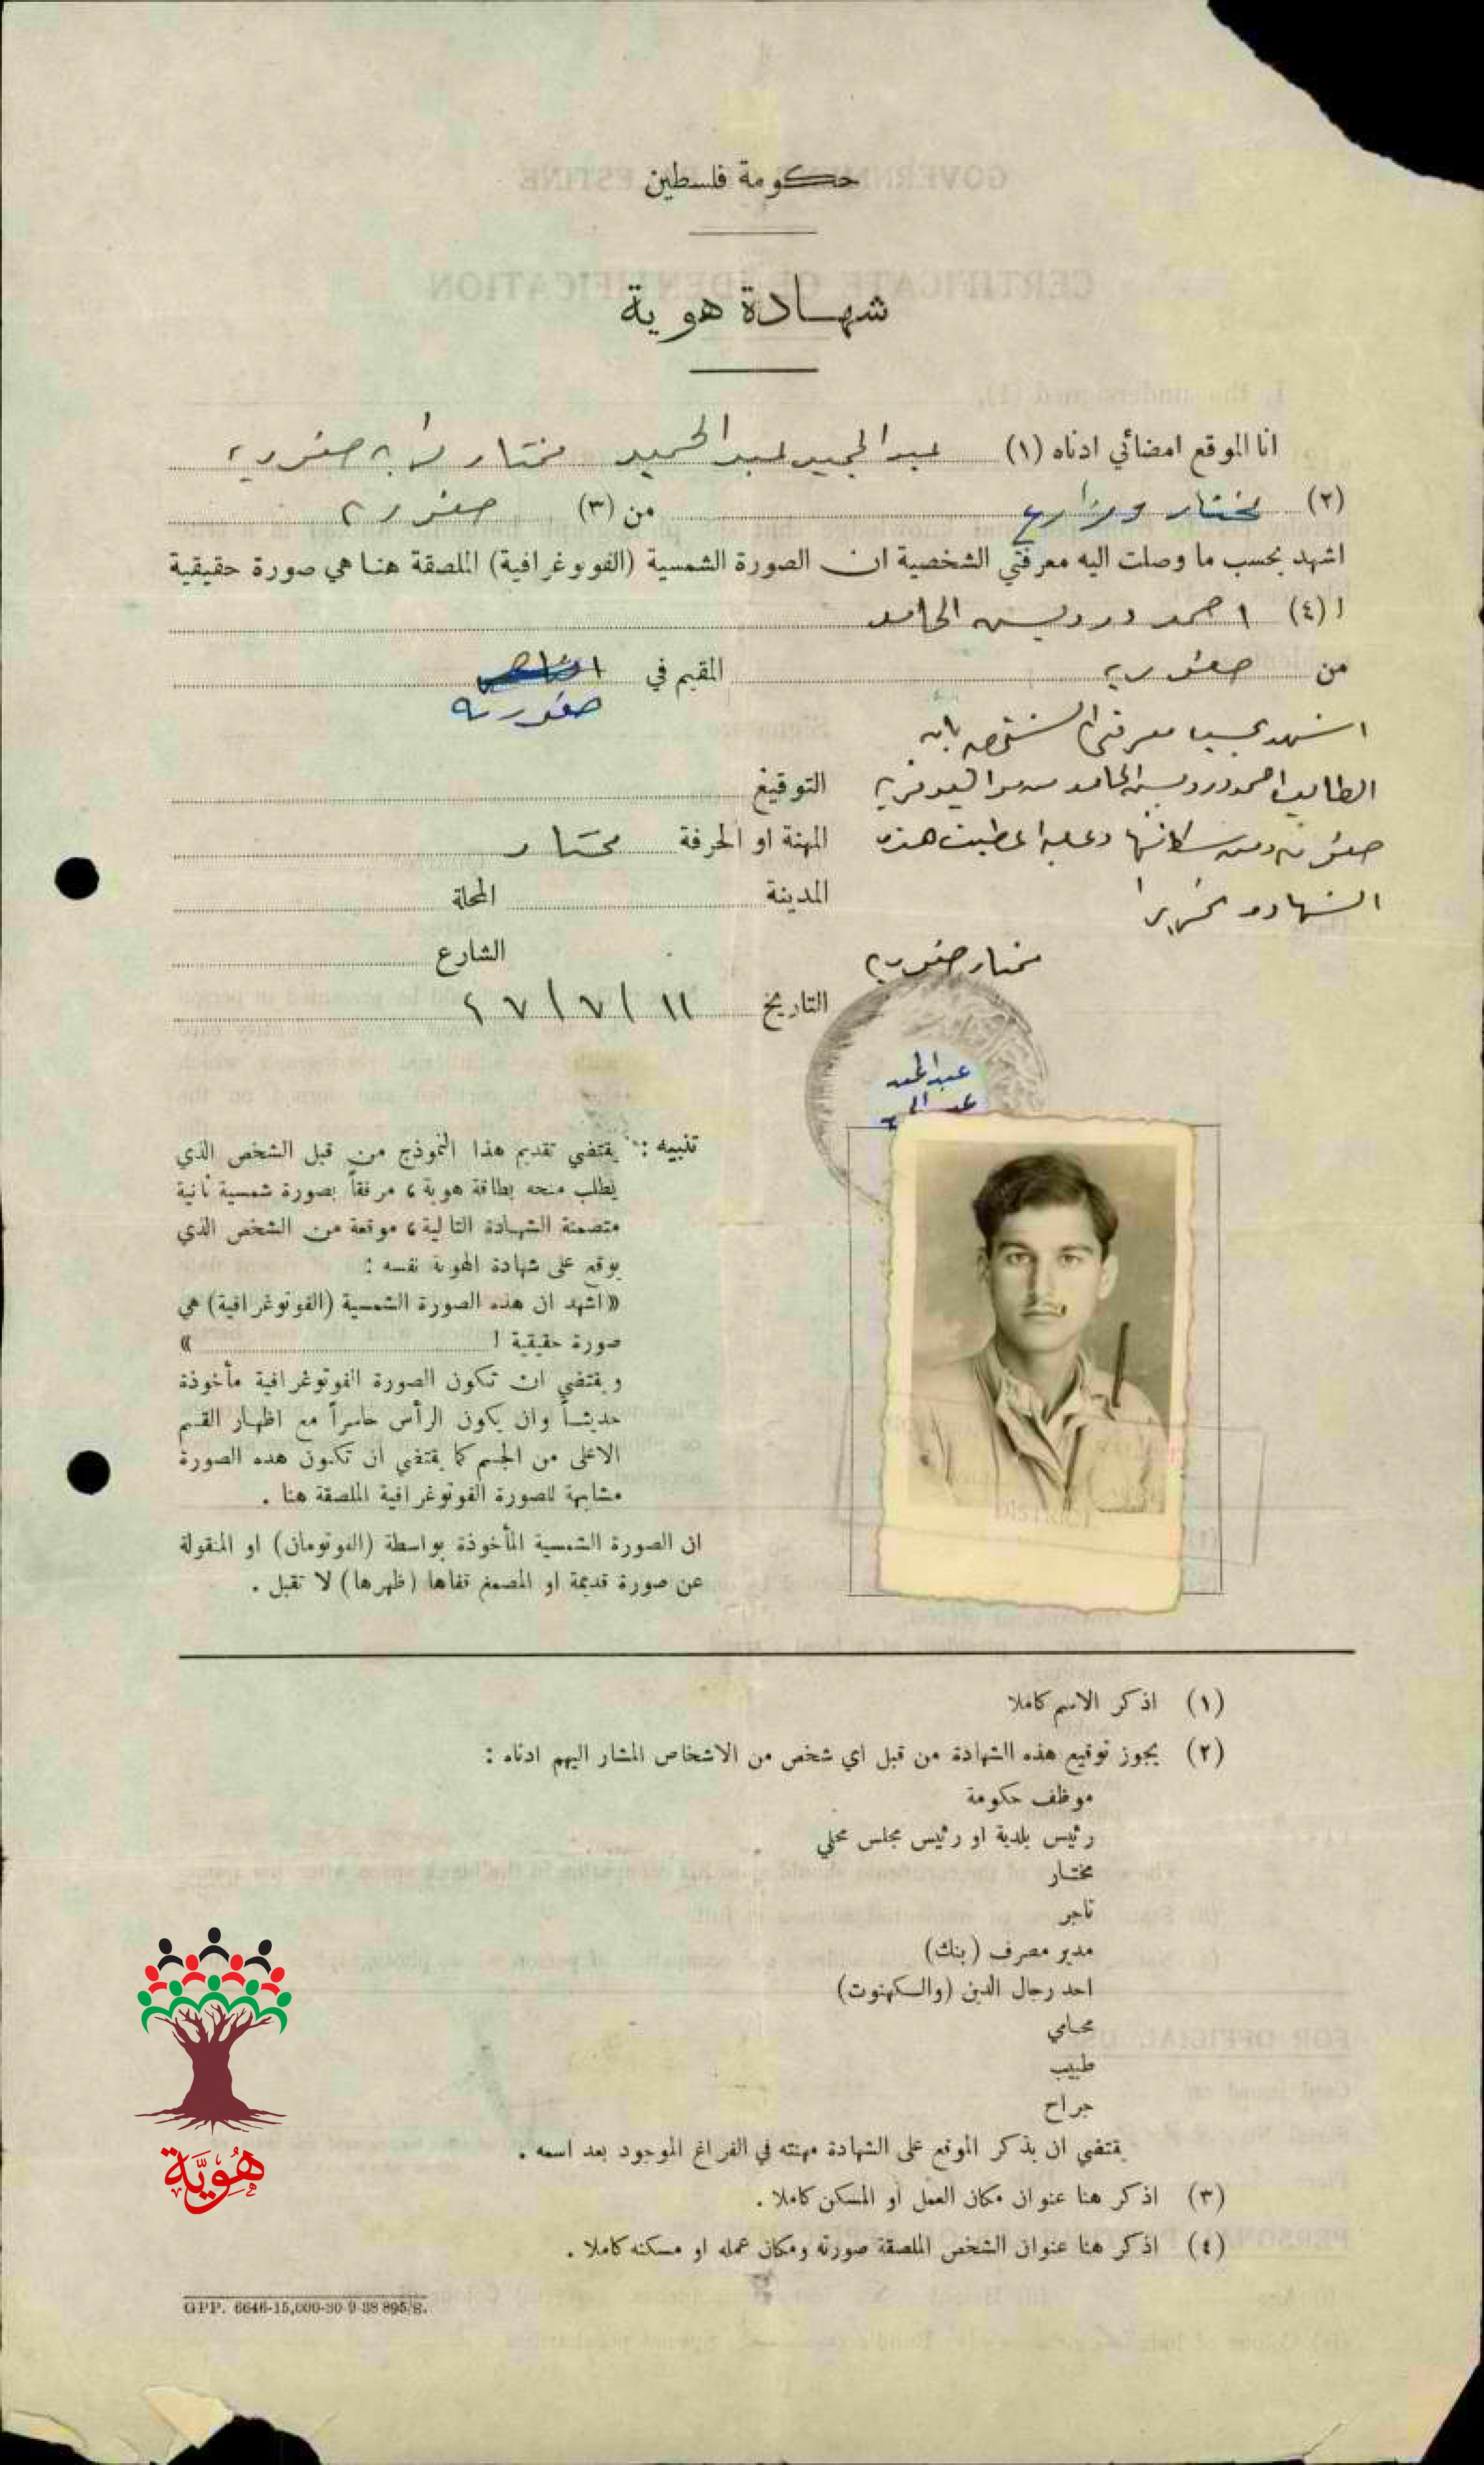 حكومة فلسطين
شهادة هوية
انا الموقع امضائي ادناه (١) عبد المجيد عبد الحميد مختار صفوريه
(٢) مختار ومزارع من (٣) صفوريه
اشهد بحسب ما وصلت اليه معرفتي الشخصية ان الصورة الشمسية (الفوتوغرافية) الملصقة هنا هي صورة حقيقية
ا (٤) احمد درويش الحامد
من صفوريه المقيم في
صفوريه
اشهد بحسب معرفتي الشخصيه بانه
الطالب احمد درويش الحامد من قريه
صفوريه ومن سكانها وعليه اعطيت هذه
الشهاده تحريرا
مختار صفوريه
التوقيع
المهنة او الحرفة مختار
المدينة المحلة
الشارع
التاريخ ١١/٧/٤٧
عبد المجيد
تنبيه : يقتضي تقديم هذا النموذج من قبل الشخص الذي
يطلب منحه بطاقة هوية ، مرفقاً بصورة شمسية ثانية
متضمنة الشهادة التالية ، موقعة من الشخص الذي
يوقع على شهادة الهوية نفسه :
«اشهد ان هذه الصورة الشمسية (الفوتوغرافية) هي
صورة حقيقية ا »
ويقتضي ان تكون الصورة الفوتوغرافية مأخوذة
حديثاً وان يكون الرأس حاسراً مع اظهار القسم
الاعلى من الجسم كما يقتضي ان تكون هذه الصورة
مشابهة للصورة الفوتوغرافية الملصقة هنا .
ان الصورة الشمسية المأخوذة بواسطة (الفوتومان) او المنقولة
عن صورة قديمة او المصمغ قفاها (ظهرها) لا تقبل .
DISTRICT
(١) اذكر الاسم كاملا
(٢) يجوز توقيع هذه الشهادة من قبل اي شخص من الاشخاص المشار اليهم ادناه :
موظف حكومة
رئيس بلدية او رئيس مجلس محلي
مختار
تاجر
مدير مصرف (بنك)
احد رجال الدين (والكهنوت)
محامي
طبيب
جراح
يقتضي ان يذكر الموقع على الشهادة مهنته في الفراغ الموجود بعد اسمه .
(٣) اذكر هنا عنوان مكان العمل أو المسكن كاملا .
(٤) اذكر هنا عنوان الشخص الملصقة صورته ومكان عمله او مسكنه كاملا .
هُوِيَّة
GPP. 6646-15,000-30-9-38 895/S.